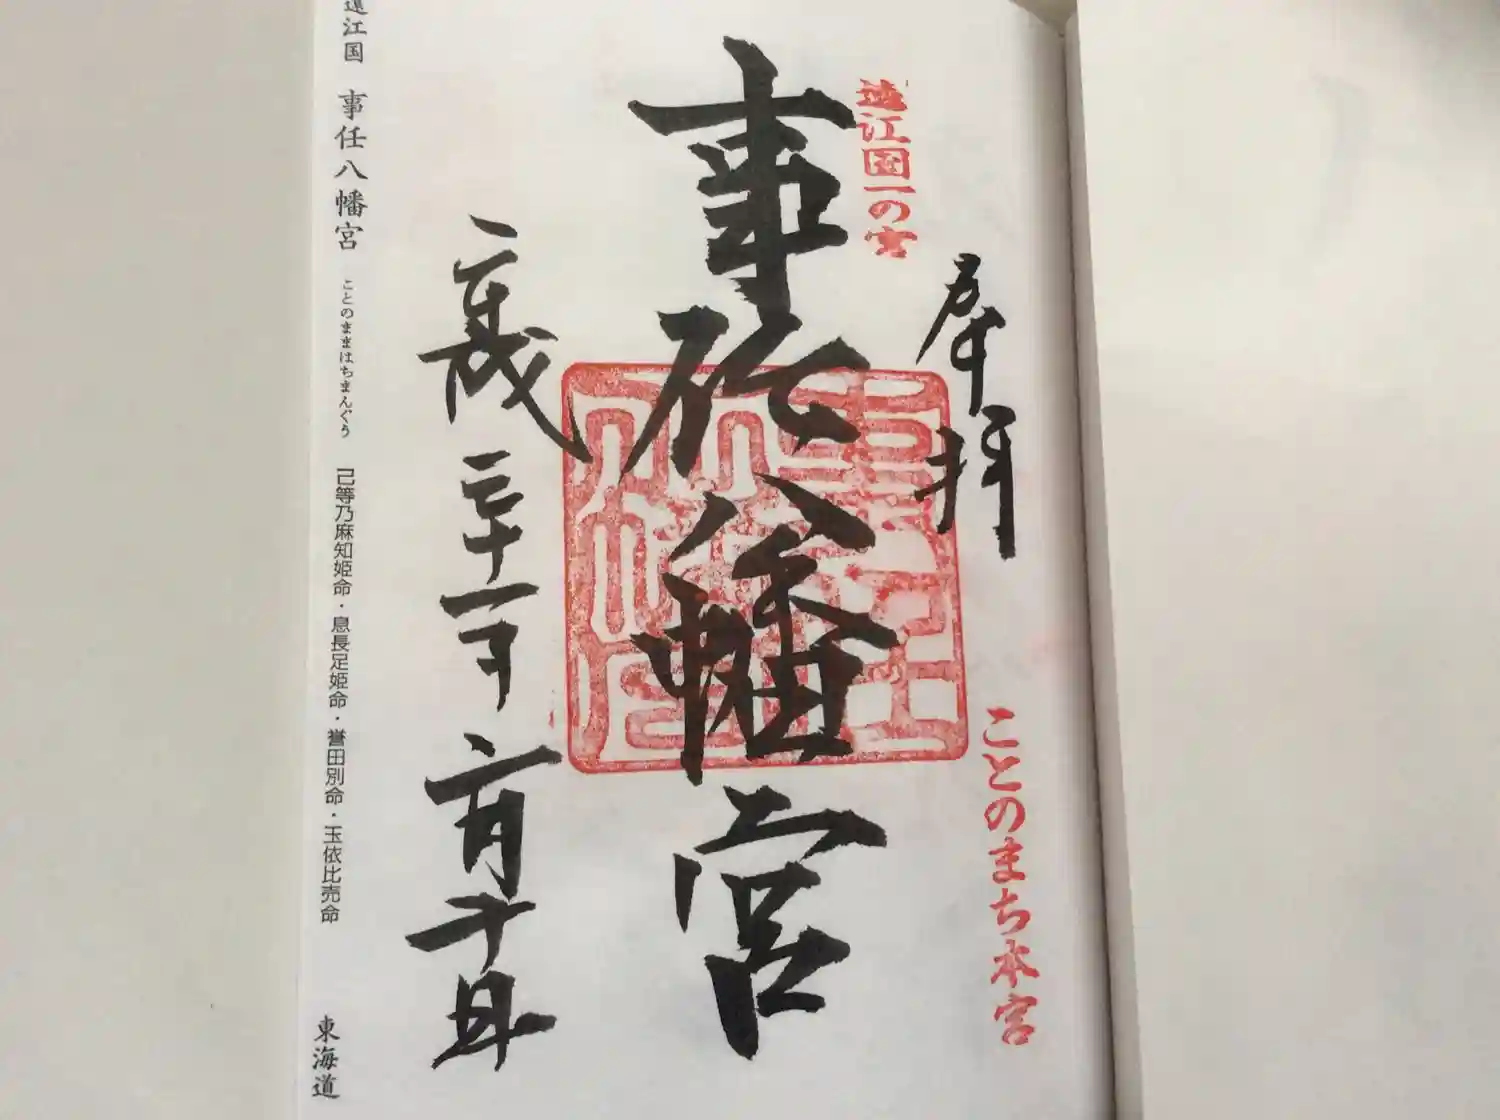 遠江国一の宮
奉拝
ことのまち本宮
事任八幡宮
平成
遠江国 事任八幡宮 ことのままはちまんぐう 己等乃麻知姫命・息長足姫命・誉田別命・玉依比売命 東海道